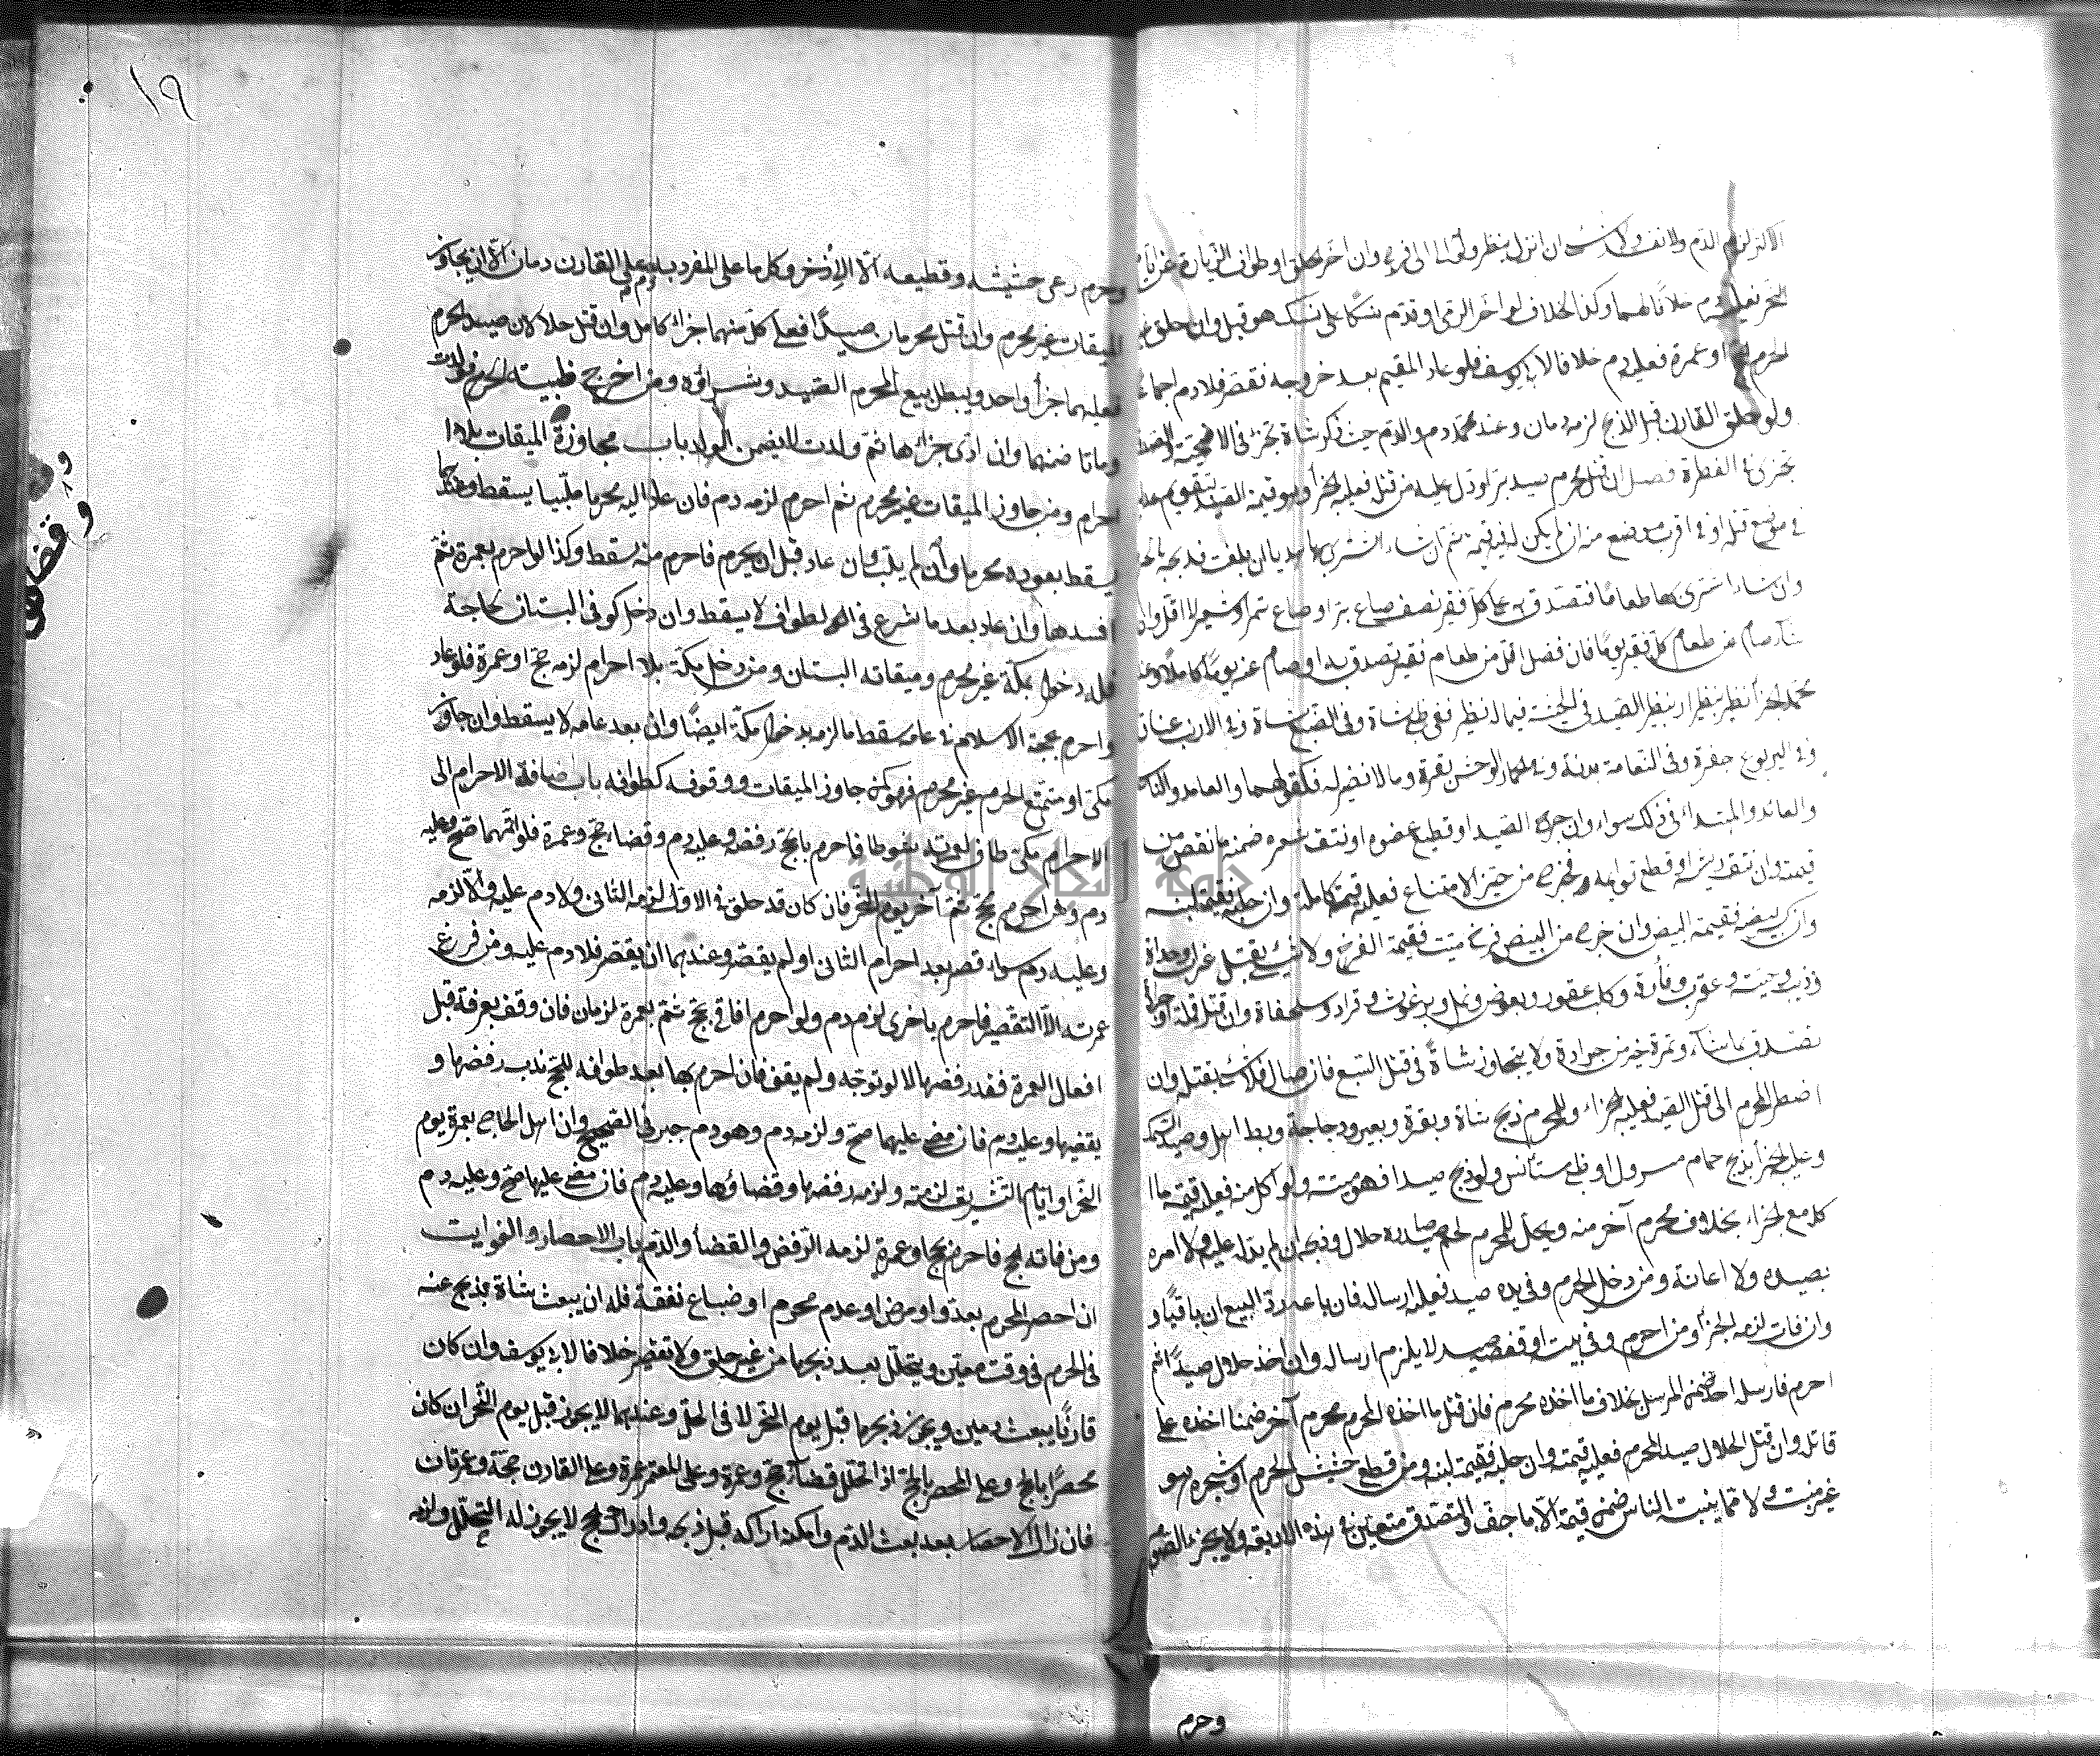 الاكثر لزم الدم ولا نفسد ولا شيء ان انزل بنظر ولو الى فرج وان اخر الحلق او طواف الزيارة عن ايام
النحر فعليه دم خلافا لهما وكذا الخلاف لو اخر الرمى او قدم نسكا على نسك هو قبله وان حلق في غير
الحرم لحج او عمرة فعليه دم خلافا لابى يوسف فلو عاد المقيم بعد خروجه فقصر فلا دم اجماعا
ولو حلق القارن قبل الذبح لزمه دمان وعند محمد دم والدم حيث ذكر شاة تجزئ فى الاضحية والصدقة
تجزئ في الفطرة فصل ان قتل محرم صيد بر او دل عليه من قتله فعليه الجزأ وهو قيمة الصيد بتقويم عدلين
في موضع قتله او في اقرب موضع منه ان لم يكن له فيه قيمة ثم ان شاء اشترى بها هديا ان بلغت فذبحه بالحرم
وان شاء اشترى بها طعاما فتصدق به على كل فقير نصف صاع بر او صاع تمر او شعير لا اقل وان
شآء صام عن طعام كل فقير يوما فان فضل اقل من طعام فقير تصدق به او صام عنه يوما كاملا وعند
محمد الجزأ نظير الصيد فى الجثة فيما له نظير ففى الظبى شاة وفى الضبع شاة وفى الارنب عناق
وفى اليربوع جفرة وفى النعامة بدنة وفى حمار الوحش بقرة وما لا نظير له فكقولهما والعامد والناسى
والعائد والمبتدائ فى ذلك سواء وان جرح الصيد او قطع عضوه او نتف شعره ضمن ما نقص من
قيمته وان نتف ريشه او قطع قوايمه فخرج من حيز الامتناع فعليه قيمة كاملة وان حلبه فقيمة لبنه
وان كسر بيضه فقيمة البيض وان خرج من البيض فرخ ميت فقيمة الفرخ ولا شيء بقتل غراب وحدأة
وذئب وحية وعقرب وفأرة وكلب عقور وبعوض ونمل وبرغوث وقراد وسلحفاة وان قتل قملة او جرادة
تصدق بما شآء وتمرة خير من جرادة ولا يتجاوز شاة فى قتل السبع فان صال فلا شئ بقتله وان
اضطر المحرم الى قتل الصيد فعليه الجزاء وللمحرم ذبح شاة وبقرة وبعير ودجاجة وبط اهلى وصيد السمك
وعليه الجزأ بذبح حمام مسرول او ظبى مستأنس ولو ذبح صيدا فهو ميتة ولو اكل منه فعليه قيمة ما ا
كل مع الجزاء بخلاف محرم آخر منه ويحل للمحرم لحم ما صاده حلال وذبحه ان لم يدله عليه ولا امره
بصيده ولا اعانة ومن دخل الحرم وفى يده صيد فعليه ارساله فان باعه رد البيع ان باقيا و
وان فات لزمه الجزأ ومن احرم وفى بيته او قفصه صيد لا يلزم ارساله وان اخذ حلال صيدا ثم
احرم فارسله احد ضمن المرسل بخلاف ما اخذه محرم فان قتل ما اخذه المحرم محرم آخر ضمنا اخذه على
قاتله وان قتل الحلال صيد الحرم فعليه قيمته وان حلبه فقيمة لبنه ومن قطع حشيش الحرم او شجره وهو
غير منبت ولا مما ينبت الناس ضمن قيمة الا ما جف والتصدق متعين في هذه الاربعة ولا يجزئ الصوم
وحرم
١٩
وحرم رعى حشيشه وقطيعه الا الاذخر وكل ما على المفرد به دم على القارن دمان الا ان يجاوز
الميقات غير محرم وان قتل محرمان صيدا فعلى كل منهما جزاء كامل وان قتل حلالان صيد الحرم
فعليهما جزأ واحد ويبطل بيع المحرم الصيد وشراؤه ومن اخرج ظبية الحرم فولدت
وماتا ضمنهما وان ادى جزائها ثم ولدت لا يضمن الولد باب مجاوزة الميقات بلا ا
احرام ومن جاوز الميقات غير محرم ثم احرم لزمه دم فان عاد اليه محرما ملبيا يسقط وعندهما
يسقط بعوده محرما وان لم يلب وان عاد قبل ان يحرم فاحرم منه يسقط وكذا لو احرم بعمرة ثم
افسدها وان عاد بعد ما شرع فى الطواف لا يسقط وان دخل كوفى البستان لحاجة
فله دخول مكة غير محرم وميقاته البستان ومن دخل مكة بلا احرام لزمه حج او عمرة فلو عاد
واحرم بحجة الاسلام في عامه سقط ما لزمه بدخول مكة ايضا وان بعد عامه لا يسقط وان جاوز
مكى او متمتع الحرم غير محرم فهو كمن جاوز الميقات ووقوفه كطوافه باب اضافة الاحرام الى
الاحرام مكى طاف لعمرته شوطا فاحرم بالحج رفضه وعليه دم وقضاء حج وعمرة فلو اتمهما صح وعليه
دم ومن احرم بحج ثم آخر يوم النحر فان كان قد حلق فى الاول لزمه الثانى ولا دم عليه والا لزمه
وعليه دم سواء قصر بعد احرام الثانى او لم يقصر وعندهما ان يقصر فلا دم عليه ومن فرغ
عمرته الا التقصير فاحرم باخرى لزم دم ولو احرم افاقى بحج ثم بعمرة لزمان فان وقف بعرفة قبل
افعال العمرة فقد رفضها لا لو توجه ولم يقف فان احرم بها بعد طوافه للحج ندب رفضها و
يقضيها وعليه دم فان مضى عليهما صح ولزمه دم وهو دم جبر فى الصحيح وان اهل الحاج بعمرة يوم
النحر او ايام التشريق لزمته ولزمه رفضها وقضاؤها وعليه دم فان مضى عليها صح وعليه دم
ومن فاته الحج فاحرم بحج او عمرة لزمه الرفض والقضأ والدم باب الاحصار والفوايت
ان احصر المحرم بعدو او مرض او عدم محرم او ضياع نفقة فله ان يبعث شاة تذبح عنه
فى الحرم فى وقت معين ويتحلل بعد ذبحها من غير حلق ولا تقصير خلافا لابى يوسف وان كان
قارنا يبعث دمين ويجوز ذبحها قبل يوم النحر لا فى الحل وعندهما لا يجوز قبل يوم النحر ان كان
محصرا بالحج وعلى المحصر بالحج اذا تحلل قضاء حج وعمرة وعلى المعتمر عمرة وعلى القارن حجة وعمرتان
فان زال الاحصار بعد بعث الدم وامكنه ادراكه قبل ذبحه وادراك الحج لا يجوز له التحلل ولزمه
جامعة النجاح الوطنية